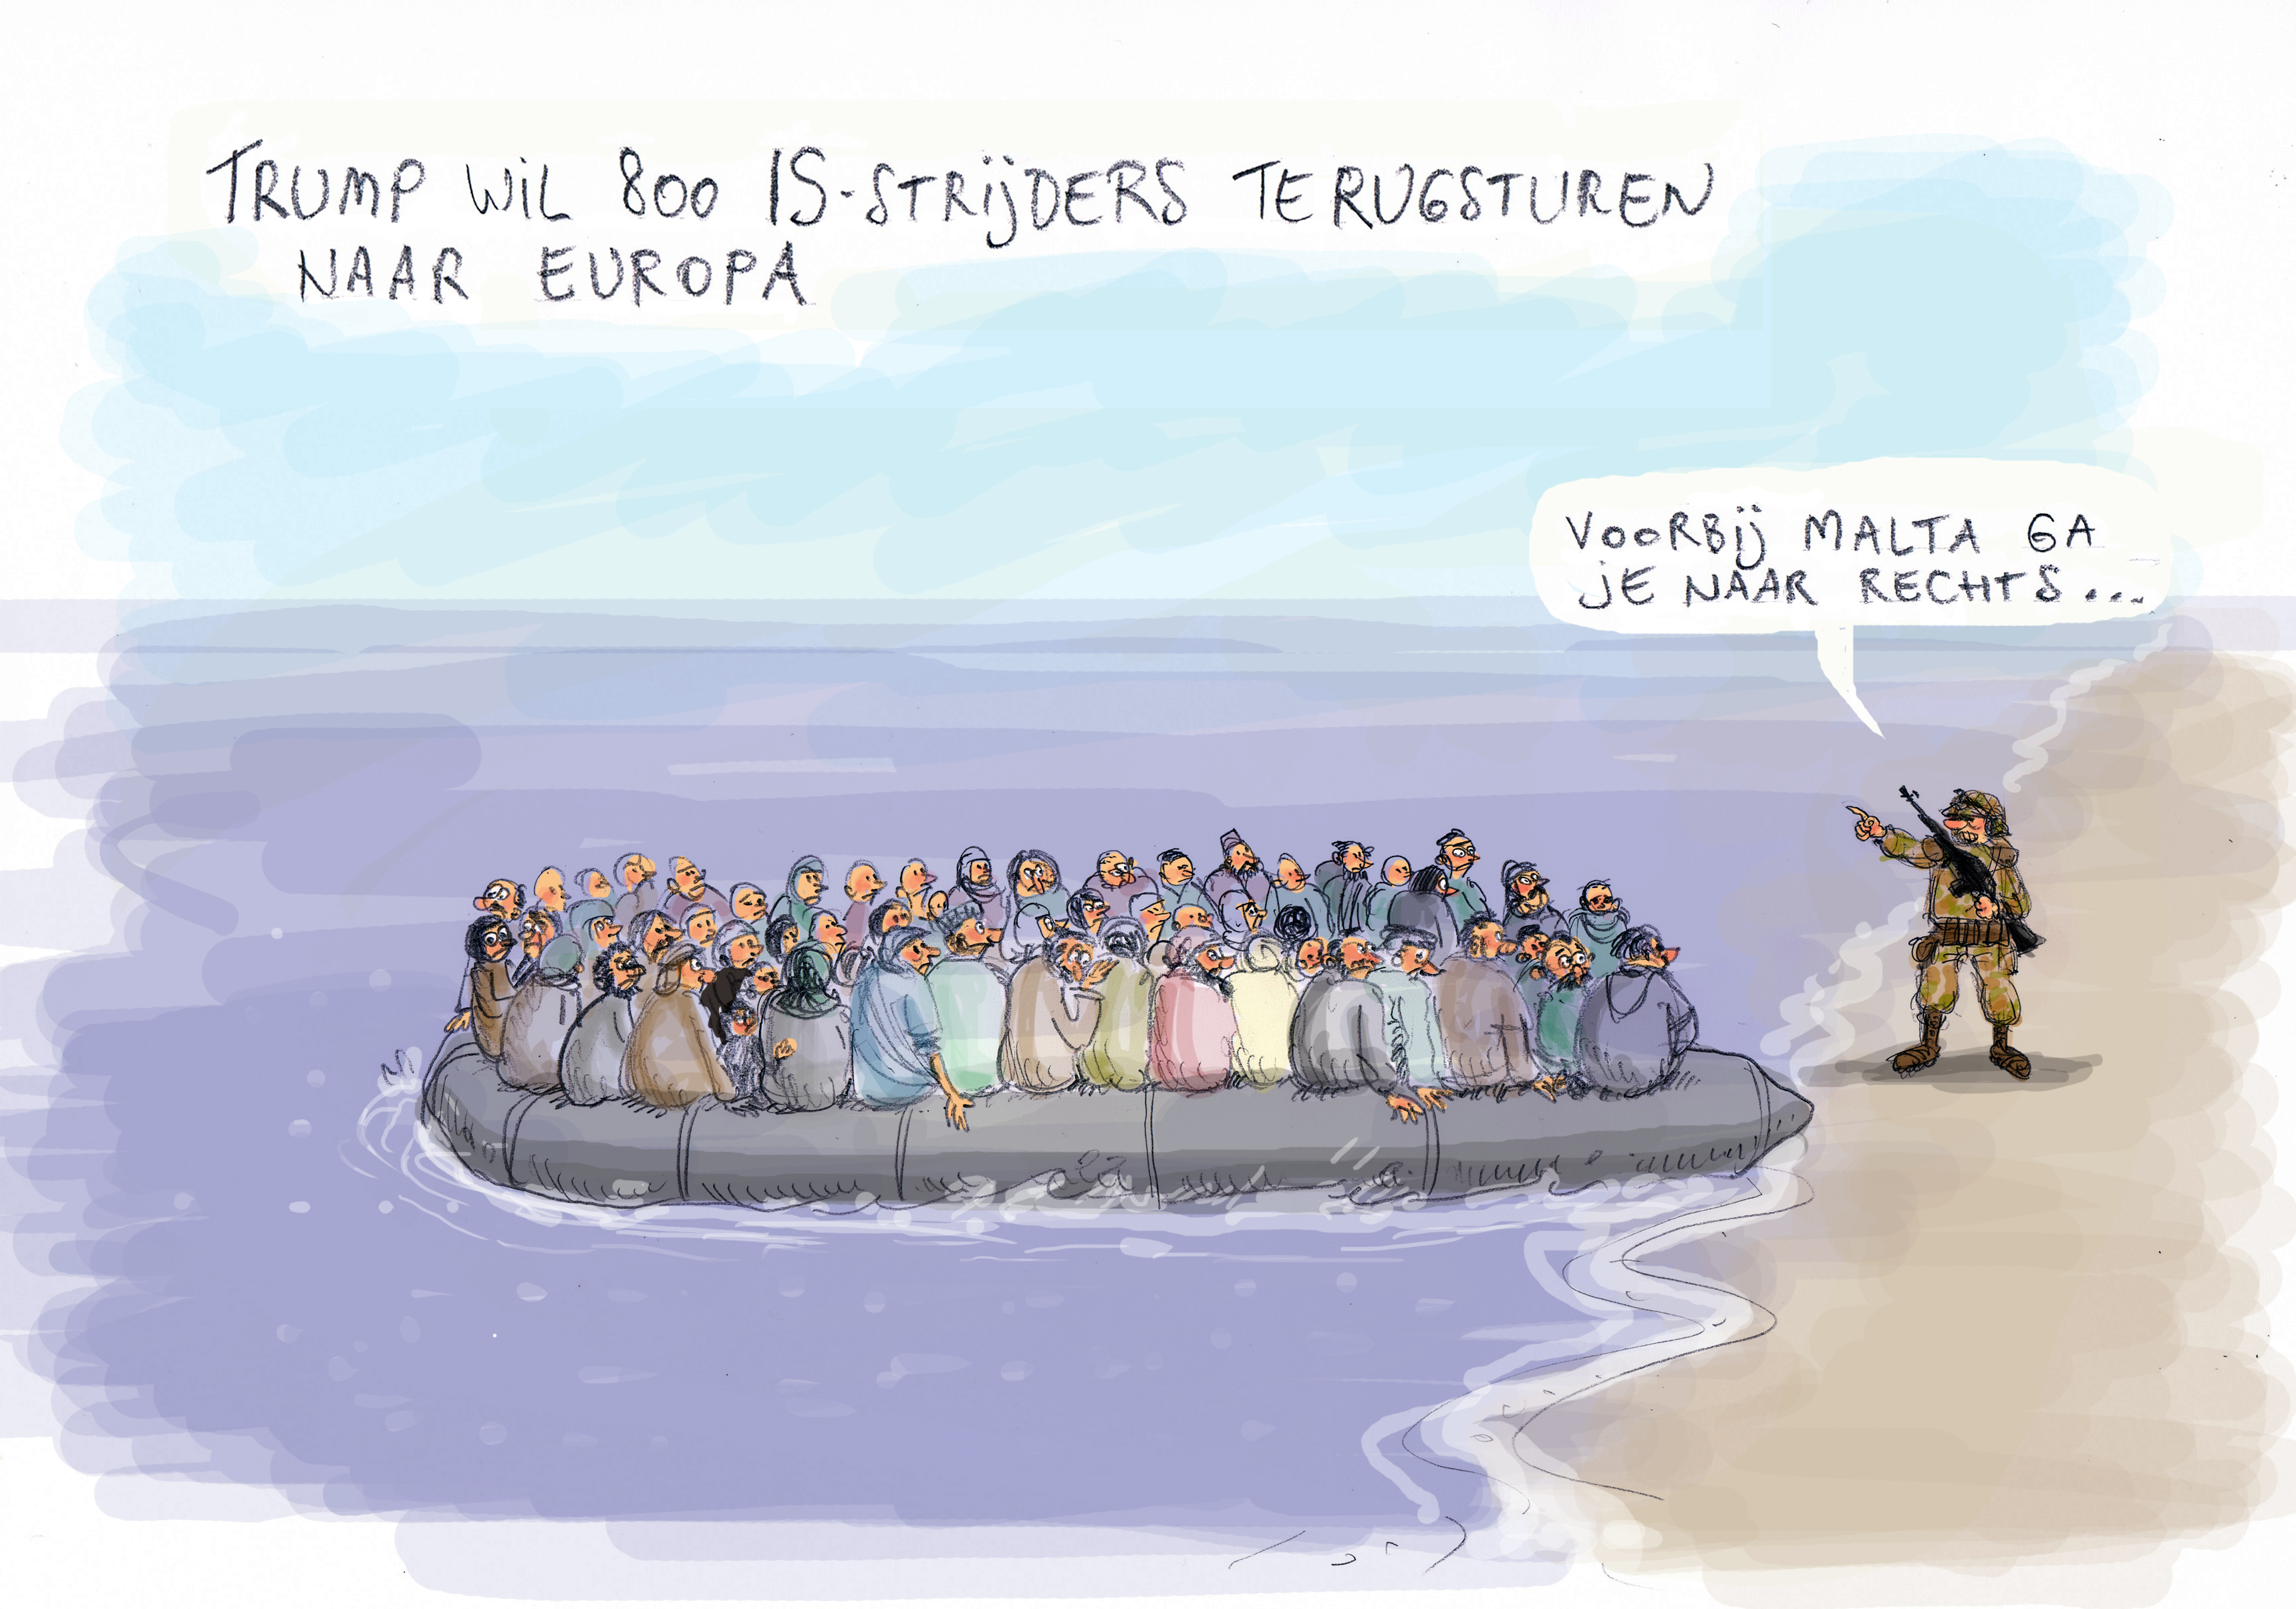 TRUMP WIL 800 IS-STRIJDERS TERUGSTUREN
NAAR EUROPA
VOORBIJ MALTA GA
JE NAAR RECHTS...